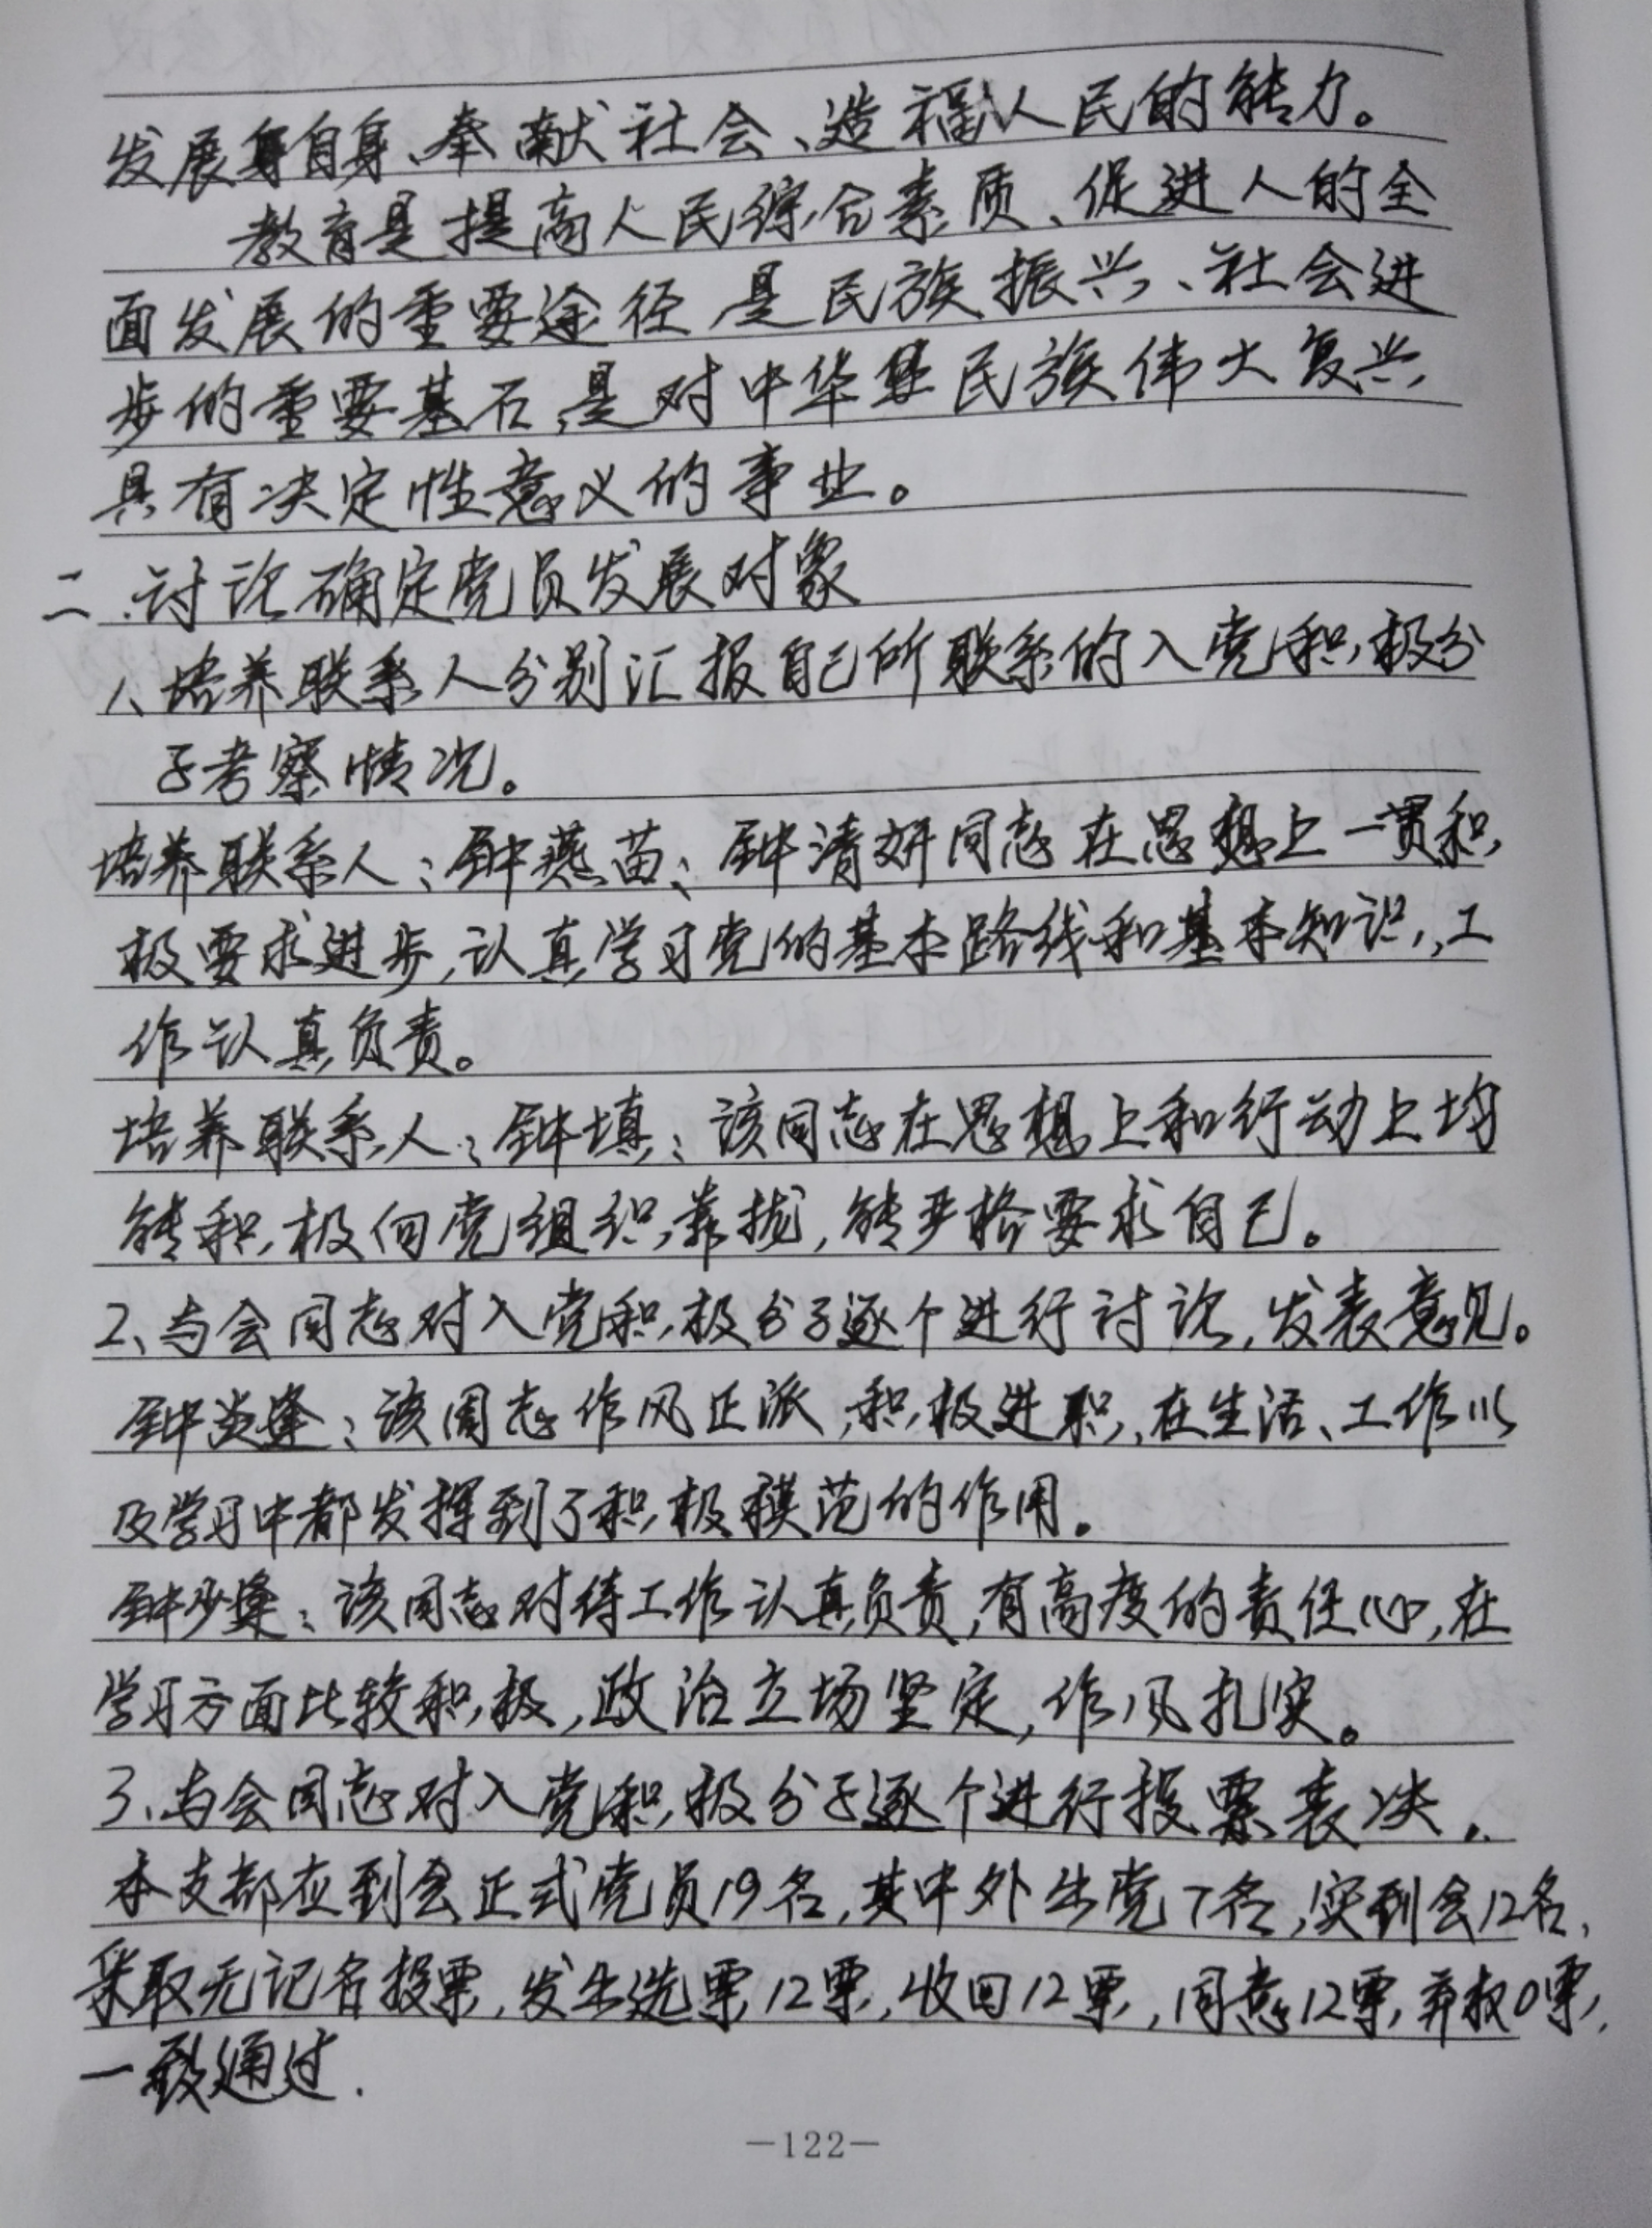 发展自身、奉献社会、造福人民的能力。
教育是提高人民综合素质、促进人的全
面发展的重要途径,是民族振兴、社会进
步的重要基石,是对中华民族伟大复兴
具有决定性意义的事业。
二.讨论确定党员发展对象
1、培养联系人分别汇报自己所联系的入党积极分
子考察情况。
培养联系人:钟燕苗:钟清妍同志在思想上一贯积
极要求进步,认真学习党的基本路线和基本知识,工
作认真负责。
培养联系人:钟填:该同志在思想上和行动上均
能积极向党组织靠拢,能严格要求自己。
2、与会同志对入党积极分子逐个进行讨论,发表意见。
钟炎逢:该同志作风正派,积极进职,在生活、工作以
及学习中都发挥到了积极模范的作用。
钟少逢:该同志对待工作认真负责,有高度的责任心,在
学习方面比较积极,政治立场坚定,作风扎实。
3、与会同志对入党积极分子逐个进行投票表决.
本支部应到会正式党员19名,其中外出党7名,实到会12名,
采取无记名投票,发出选票12票,收回12票,同意12票,弃权0票,
一致通过.
—122—